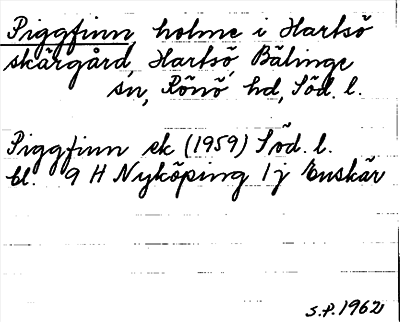 Piggfinn holme i Hartsö
skärgård, Hartsö, Bälinge
sn, Rönö hd, Söd. l.
Piggfinn ek (1959) Söd. l.
bl. 9 H Nyköping 1 j Enskär
S.P. 1962